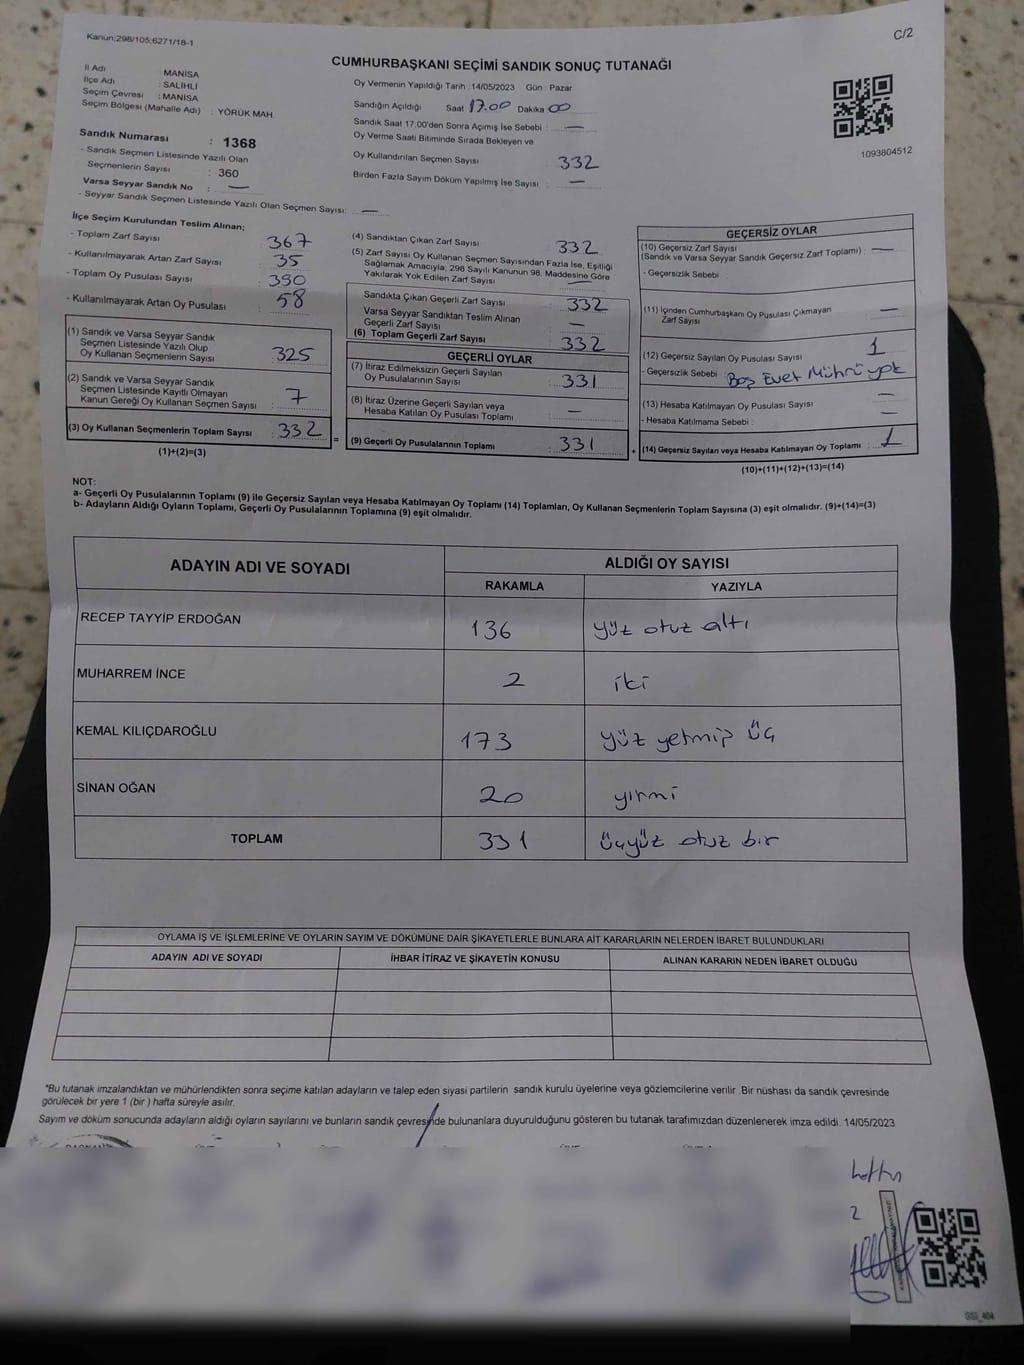 Kanun;298/105;6271/18-1
C/2
CUMHURBAŞKANI SEÇİMİ SANDIK SONUÇ TUTANAĞI
İl Adı : MANİSA
İlçe Adı : SALİHLİ
Seçim Çevresi : MANİSA
Seçim Bölgesi (Mahalle Adı) : YÖRÜK MAH.
Sandık Numarası : 1368
- Sandık Seçmen Listesinde Yazılı Olan
Seçmenlerin Sayısı : 360
Varsa Seyyar Sandık No : —
- Seyyar Sandık Seçmen Listesinde Yazılı Olan Seçmen Sayısı: —
Oy Vermenin Yapıldığı Tarih :14/05/2023 Gün : Pazar
Sandığın Açıldığı Saat 17.00 Dakika 00
Sandık Saat 17:00'den Sonra Açımış İse Sebebi : —
Oy Verme Saati Bitiminde Sırada Bekleyen ve
Oy Kullandırılan Seçmen Sayısı : 332
Birden Fazla Sayım Döküm Yapılmış İse Sayısı : —
1093804512
İlçe Seçim Kurulundan Teslim Alınan;
- Toplam Zarf Sayısı : 367
- Kullanılmayarak Artan Zarf Sayısı : 35
- Toplam Oy Pusulası Sayısı : 390
- Kullanılmayarak Artan Oy Pusulası : 58
(1) Sandık ve Varsa Seyyar Sandık
Seçmen Listesinde Yazılı Olup
Oy Kullanan Seçmenlerin Sayısı : 325
(2) Sandık ve Varsa Seyyar Sandık
Seçmen Listesinde Kayıtlı Olmayan
Kanun Gereği Oy Kullanan Seçmen Sayısı : 7
(3) Oy Kullanan Seçmenlerin Toplam Sayısı : 332
(1)+(2)=(3)
=
(4) Sandıktan Çıkan Zarf Sayısı : 332
(5) Zarf Sayısı Oy Kullanan Seçmen Sayısından Fazla İse, Eşitliği
Sağlamak Amacıyla; 298 Sayılı Kanunun 98. Maddesine Göre
Yakılarak Yok Edilen Zarf Sayısı : —
Sandıkta Çıkan Geçerli Zarf Sayısı : 332
Varsa Seyyar Sandıktan Teslim Alınan
Geçerli Zarf Sayısı : —
(6) Toplam Geçerli Zarf Sayısı : 332
GEÇERLİ OYLAR
(7) İtiraz Edilmeksizin Geçerli Sayılan
Oy Pusulalarının Sayısı : 331
(8) İtiraz Üzerine Geçerli Sayılan veya
Hesaba Katılan Oy Pusulası Toplamı : —
(9) Geçerli Oy Pusulalarının Toplamı : 331
+
GEÇERSİZ OYLAR
(10) Geçersiz Zarf Sayısı
(Sandık ve Varsa Seyyar Sandık Geçersiz Zarf Toplamı) : —
- Geçersizlik Sebebi :
(11) İçinden Cumhurbaşkanı Oy Pusulası Çıkmayan
Zarf Sayısı : —
(12) Geçersiz Sayılan Oy Pusulası Sayısı : 1
- Geçersizlik Sebebi : Boş Evet Mührü yok
(13) Hesaba Katılmayan Oy Pusulası Sayısı : —
- Hesaba Katılmama Sebebi : —
(14) Geçersiz Sayılan veya Hesaba Katılmayan Oy Toplamı : 1
(10)+(11)+(12)+(13)=(14)
NOT:
a- Geçerli Oy Pusulalarının Toplamı (9) ile Geçersiz Sayılan veya Hesaba Katılmayan Oy Toplamı (14) Toplamları, Oy Kullanan Seçmenlerin Toplam Sayısına (3) eşit olmalıdır. (9)+(14)=(3)
b- Adayların Aldığı Oyların Toplamı, Geçerli Oy Pusulalarının Toplamına (9) eşit olmalıdır.
ADAYIN ADI VE SOYADI
ALDIĞI OY SAYISI
RAKAMLA YAZIYLA
RECEP TAYYİP ERDOĞAN 136 yüz otuz altı
MUHARREM İNCE 2 iki
KEMAL KILIÇDAROĞLU 173 yüz yetmiş üç
SİNAN OĞAN 20 yirmi
TOPLAM 331 üçyüz otuz bir
OYLAMA İŞ VE İŞLEMLERİNE VE OYLARIN SAYIM VE DÖKÜMÜNE DAİR ŞİKAYETLERLE BUNLARA AİT KARARLARIN NELERDEN İBARET BULUNDUKLARI
ADAYIN ADI VE SOYADI İHBAR İTİRAZ VE ŞİKAYETİN KONUSU ALINAN KARARIN NEDEN İBARET OLDUĞU
*Bu tutanak imzalandıktan ve mühürlendikten sonra seçime katılan adayların ve talep eden siyasi partilerin sandık kurulu üyelerine veya gözlemcilerine verilir .Bir nüshası da sandık çevresinde
görülecek bir yere 1 (bir ) hafta süreyle asılır.
Sayım ve döküm sonucunda adayların aldığı oyların sayılarını ve bunların sandık çevresinde bulunanlara duyurulduğunu gösteren bu tutanak tarafımızdan düzenlenerek imza edildi. 14/05/2023
2